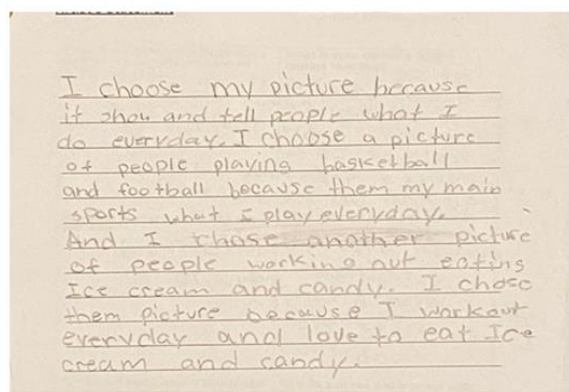 I choose my picture because
it show and tell people what I
do everyday. I choose a picture
of people playing basketball
and football because them my main
sports what I play everyday.
And I chose another picture
of people working out eating
Ice cream and candy. I chose
them picture because I workout
everyday and love to eat Ice
cream and candy.